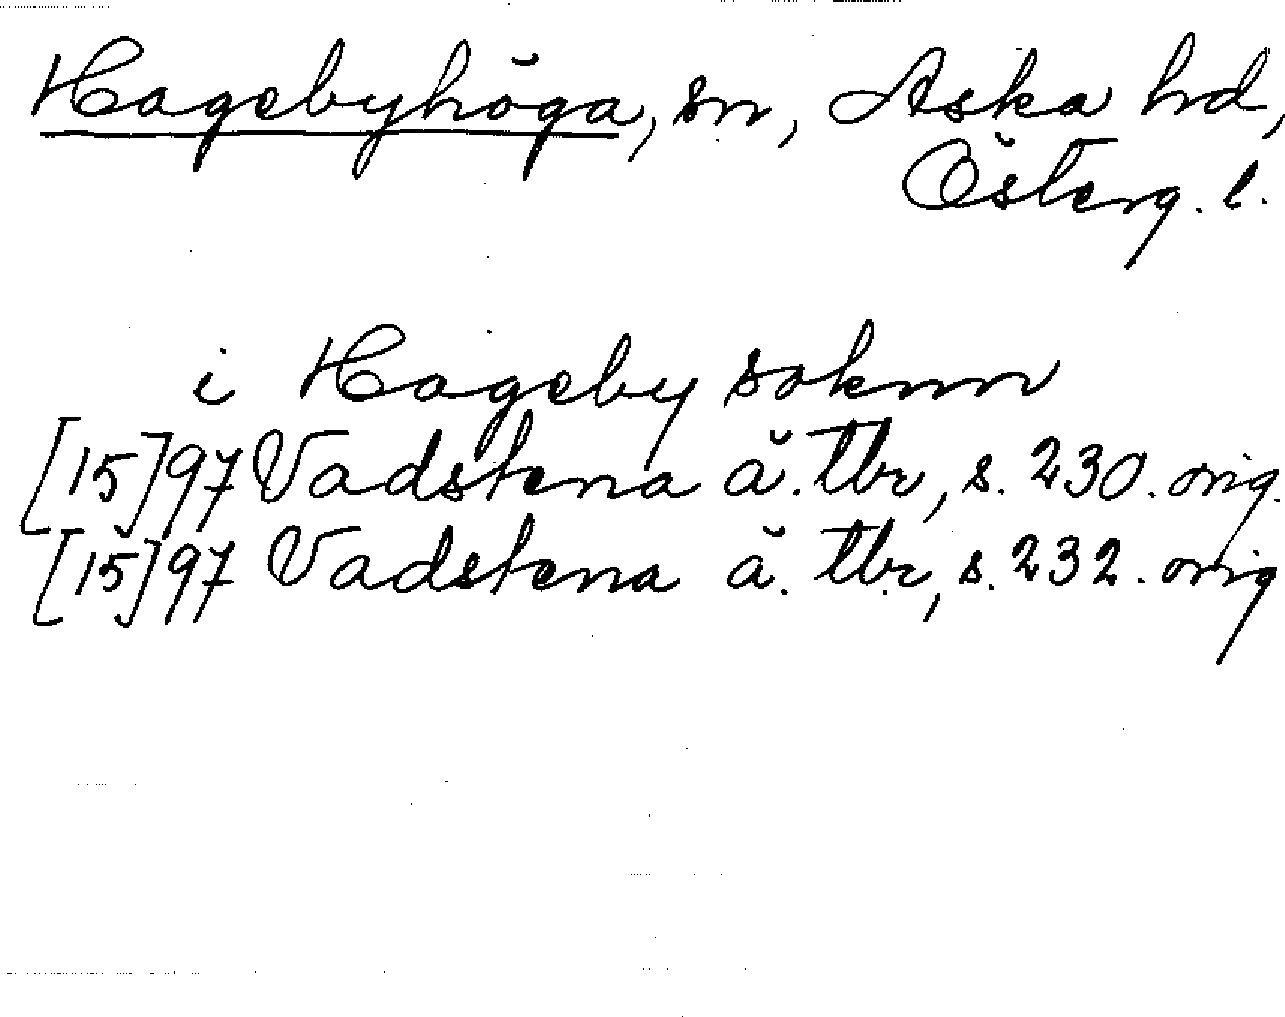 Hagebyhöga, sn, Aska hd,
Österg. l.
i Hageby soknn
[15]97 Vadstena ä. tbr, s. 230. orig.
[15]97 Vadstena ä. tbr, s. 232. orig